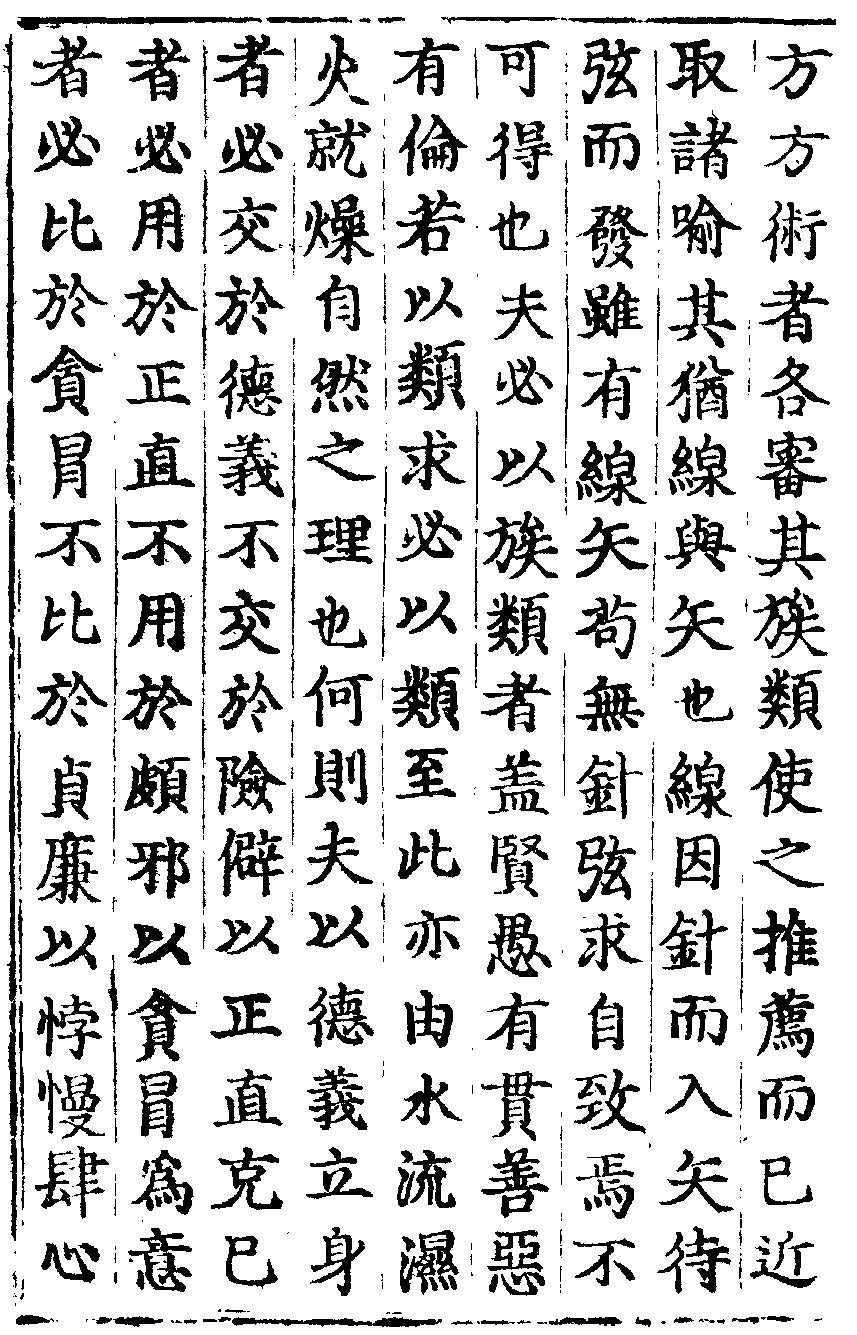 方方術者各審其族類使之推薦而已近
取諸喻其猶線與矢也線因針而入矢待
弦而發雖有線矢苟無針弦求自致焉不
可得也夫必以族類者盖賢愚有貫善惡
有倫若以類求必以類至此亦由水流濕
火就燥自然之理也何則夫以德義立身
者必交於德義不交於險僻以正直克已
者必用於正直不用於頗邪以貪冒爲意
者必比於貪冒不比於貞廉以悖慢肆心